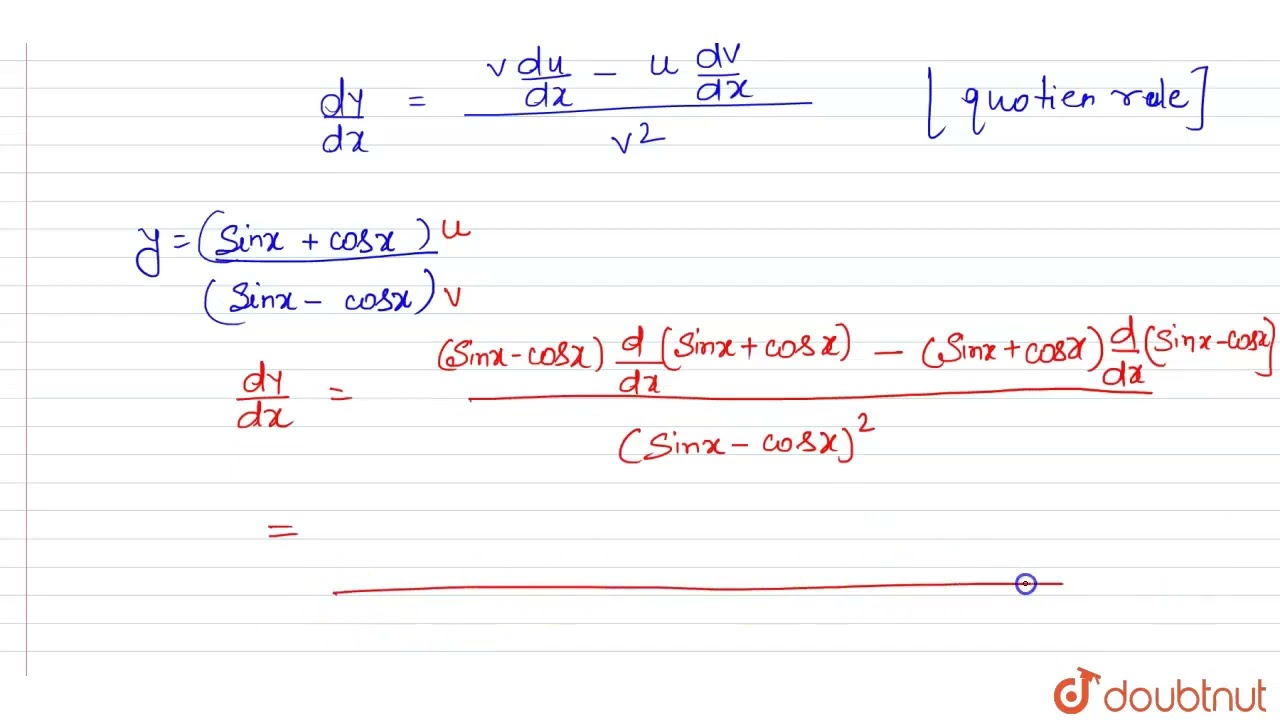 dy/dx = (v du/dx - u dv/dx) / v² [quotien rule]
y = (sinx + cosx) u
(sinx - cosx) v
dy/dx = (sinx - cosx) d/dx (sinx + cosx) - (sinx + cosx) d/dx (sinx - cosx]
(sinx - cosx)²
=
doubtnut